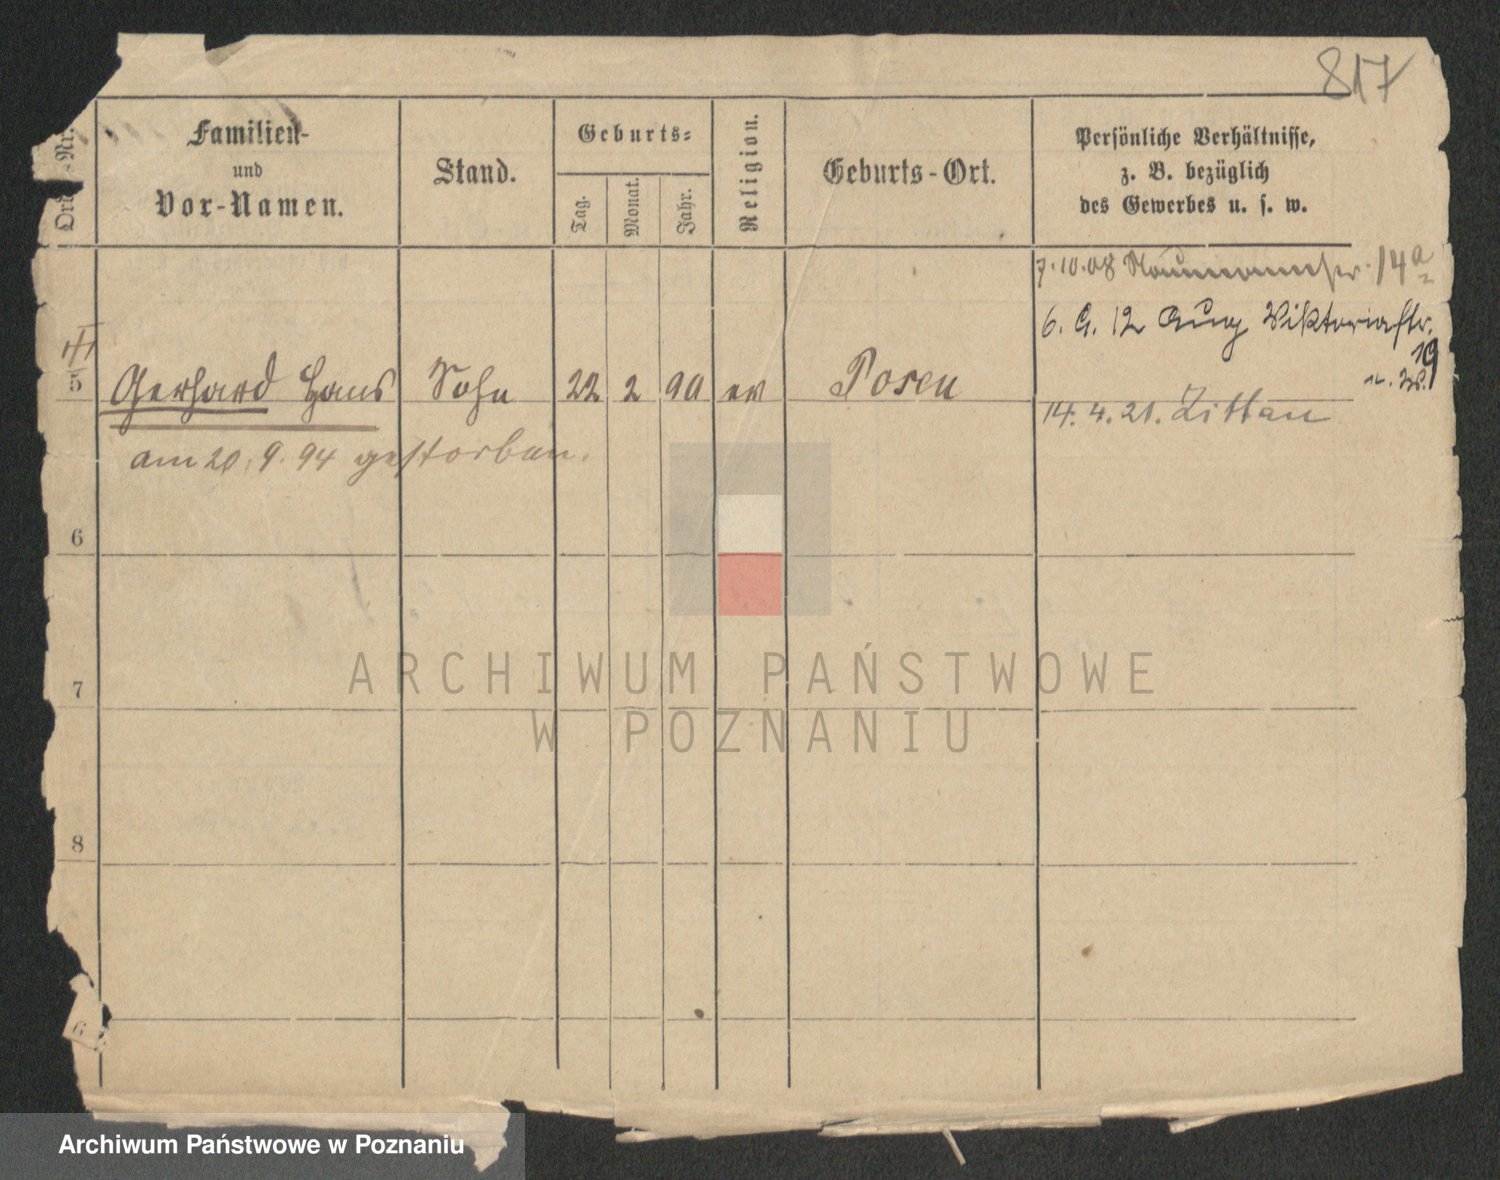 817
Ord.-Nr.
Familien-
und
Vor-Namen.
Stand.
Geburts-
Tag.
Monat.
Jahr.
Religion.
Geburts-Ort.
Persönliche Verhältnisse,
z. B. bezüglich
des Gewerbes u. s. w.
7.10.08 Naumannstr. 14a
6. 9. 12 Aug Viktoriastr.
19
5 Gerhard Hans Sohn 22 2 90 ev Posen
14. 4. 21. Zittau
am 20. 9. 94 gestorben.
6
7
8
ARCHIWUM PAŃSTWOWE
W POZNANIU
Archiwum Państwowe w Poznaniu